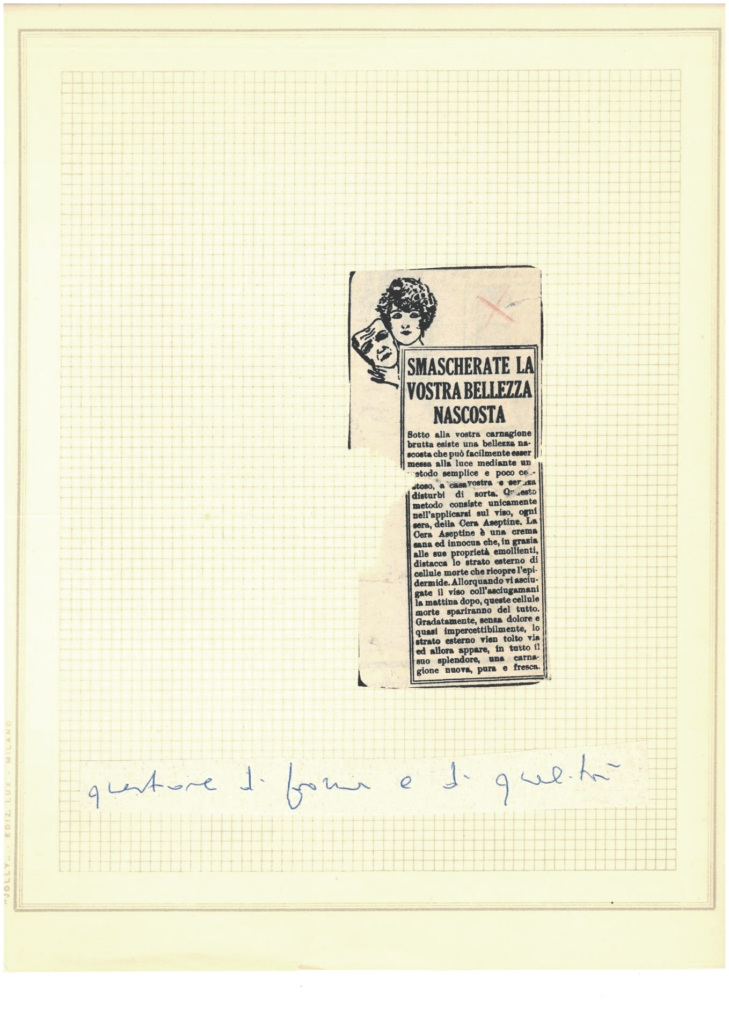 SMASCHERATE LA
VOSTRA BELLEZZA
NASCOSTA
Sotto alla vostra carnagione
brutta esiste una bellezza na-
scosta che può facilmente esser
messa alla luce mediante un
etodo semplice e poco co-
stoso, a casa vostra e senza
disturbi di sorta. Questo
metodo consiste unicamente
nell'applicarsi sul viso, ogni
sera, della Cera Aseptine. La
Cera Aseptine è una crema
sana ed innocua che, in grazia
alle sue proprietà emollienti,
distacca lo strato esterno di
cellule morte che ricopre l'epi-
dermide. Allorquando vi asciu-
gate il viso coll'asciugamani
la mattina dopo, queste cellule
morte spariranno del tutto.
Gradatamente, senza dolore e
quasi impercettibilmente, lo
strato esterno vien tolto via
ed allora appare, in tutto il
suo splendore, una carna-
gione nuova, pura e fresca.
questione di forma e di qualità
"JOLLY" - EDIZ. LUX - MILANO